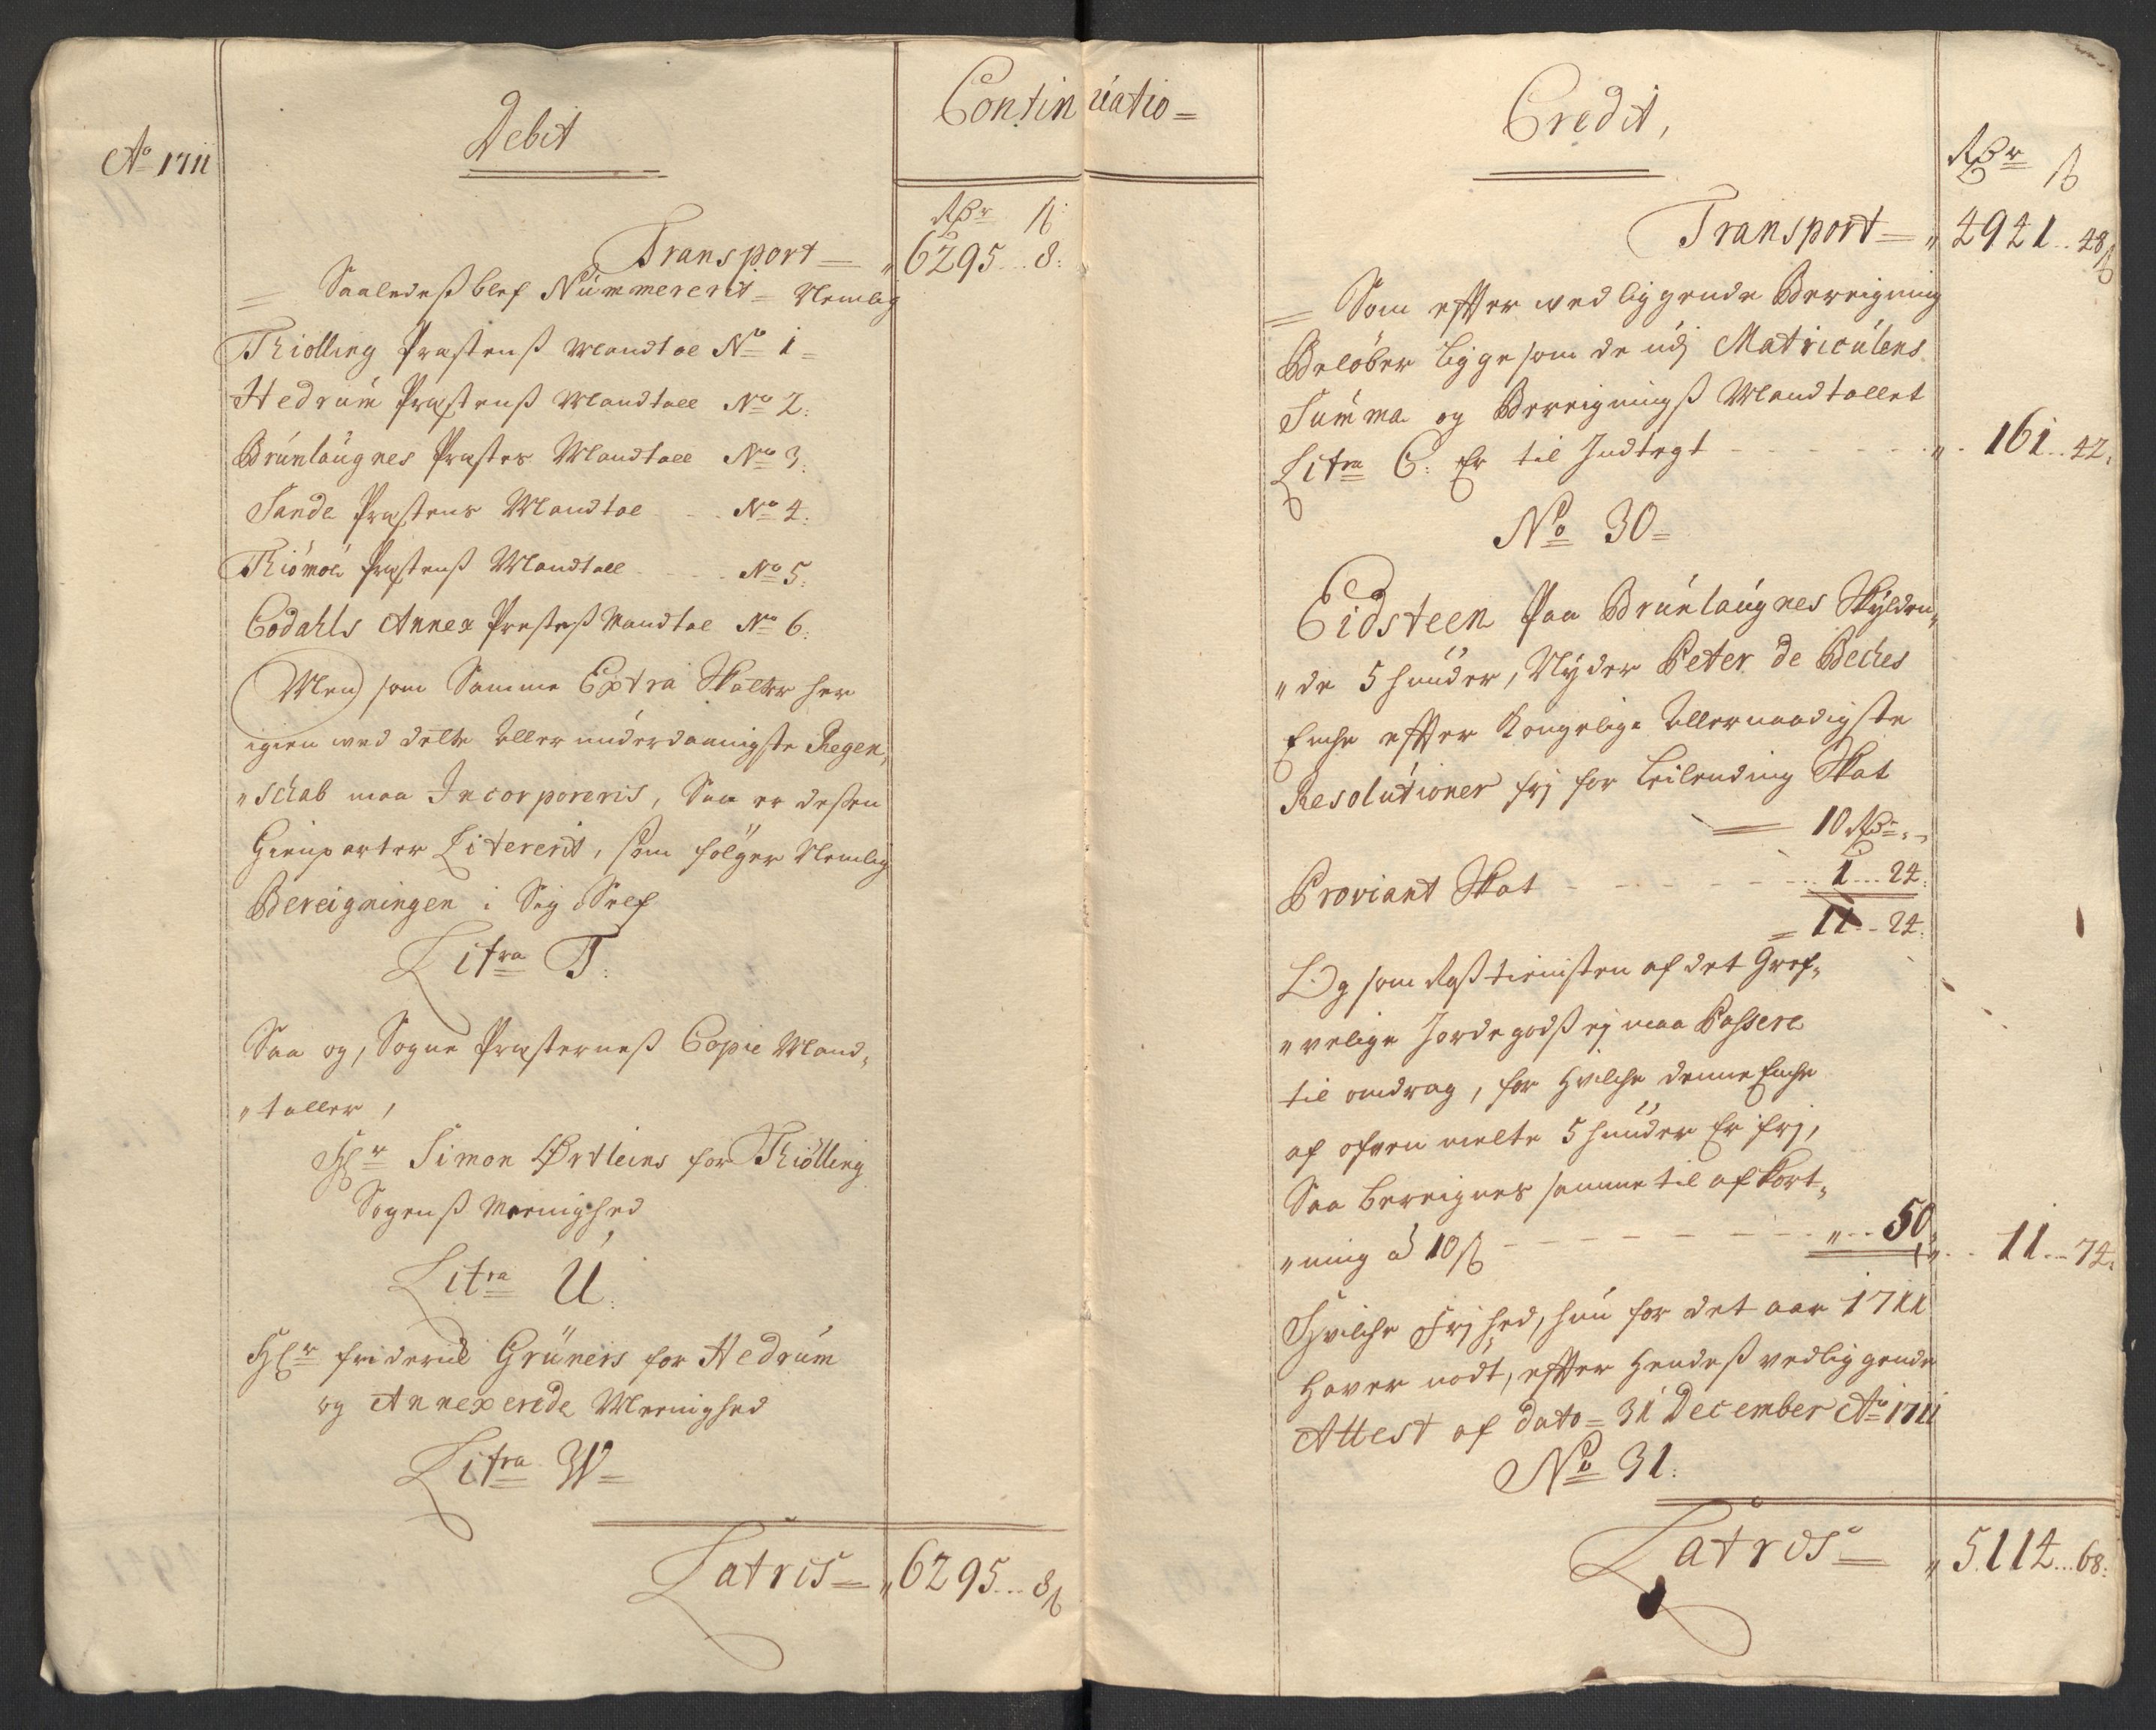 Continuatio =
Ao 1711
Debit
Rdr ß:
Transport = „ 6295 .. 8:
= Saaledeß blef Nummererit = Nemlig
Thiølling Præstenß Mandtal No 1 =
Hedrum Præstenß Mandtall No 2:
Brunlaugnes Præstes Mandtall No 3:
Sande Præstens Mandtal .. No 4:
Thiømøe Præstenß Mandtall .. No 5:
Codahls Annex Presteß Mandtal No 6:
Men som Samme Extra Skatter her
igien med dette aller underdannigste Regen„
„schab maa Incorporeris, Saa er deßen
Gienparter Litererit, som følger Nemlig
Bereigningen i Sig Self
Litra T:
Saa og, Sogne Præsterneß Copie Mand„
„taller,
Hr Simon Ørtleins for Thiølling
Sogenß Meenighed
Litra U:
Hr friderich Grüners for Hedrum
og Annexerede Meenighed
Litra W =
Latris = „ 6295 ... 8ß
Credit,
Rdr ß
Transport = „ 4941 .. 48ß
= Som effter wed liggende Bereigning
Beløber ligge som de udj Matriculens
Summa og Bereignings Mandtallet
Litra C: Er til Indtegt - - - - „ . 161 .. 42.
No 30 =
Eidsteen Paa Brunlaugnes Skylden„
„de 5 huuder, Nyder Peter de Beches
Enche effter Kongelige Allernaadigste
Resolutioner frj for Leilending Skat
= 10 Rdr „ „
Proviant Skat - - - - - 1 ... 24:
= 11 .. 24:
Og som Roßtienisten af det Gref„
„velige Jordegodß ej maa Passere
til andrag, for hvilche denne Enche
af ofven melte 5 huuder Er frj,
Saa bereignes samme til afkort„
„ning à 10 ß - - - - - „ .. 50 „ . . 11 ... 74.
Hvilche Frjhed, hun for det aar 1711
haver nødt, effter hendeß vedliggende
Attest af dato = 31 December Ao 1711
No 31:
Latris = „ 5114 ... 68: